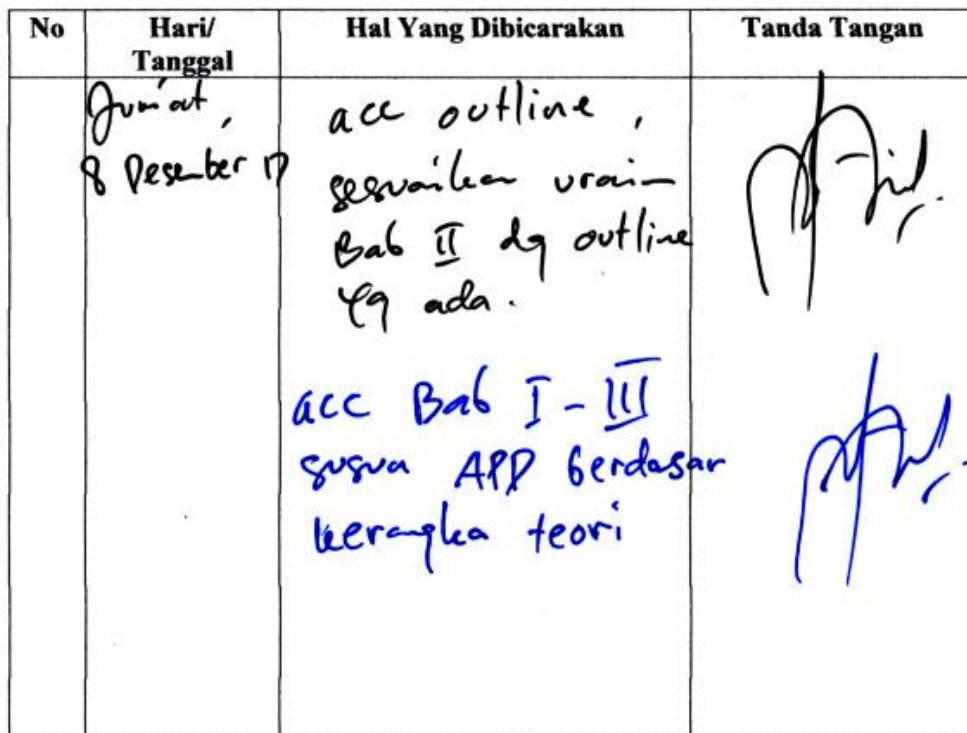 No
Hari/
Tanggal
Hal Yang Dibicarakan
Tanda Tangan
Jum'at,
8 Desember 17
acc outline,
sesuaikan uraian
Bab II dg outline
yg ada.
acc Bab I - III
susun APD berdasar
kerangka teori